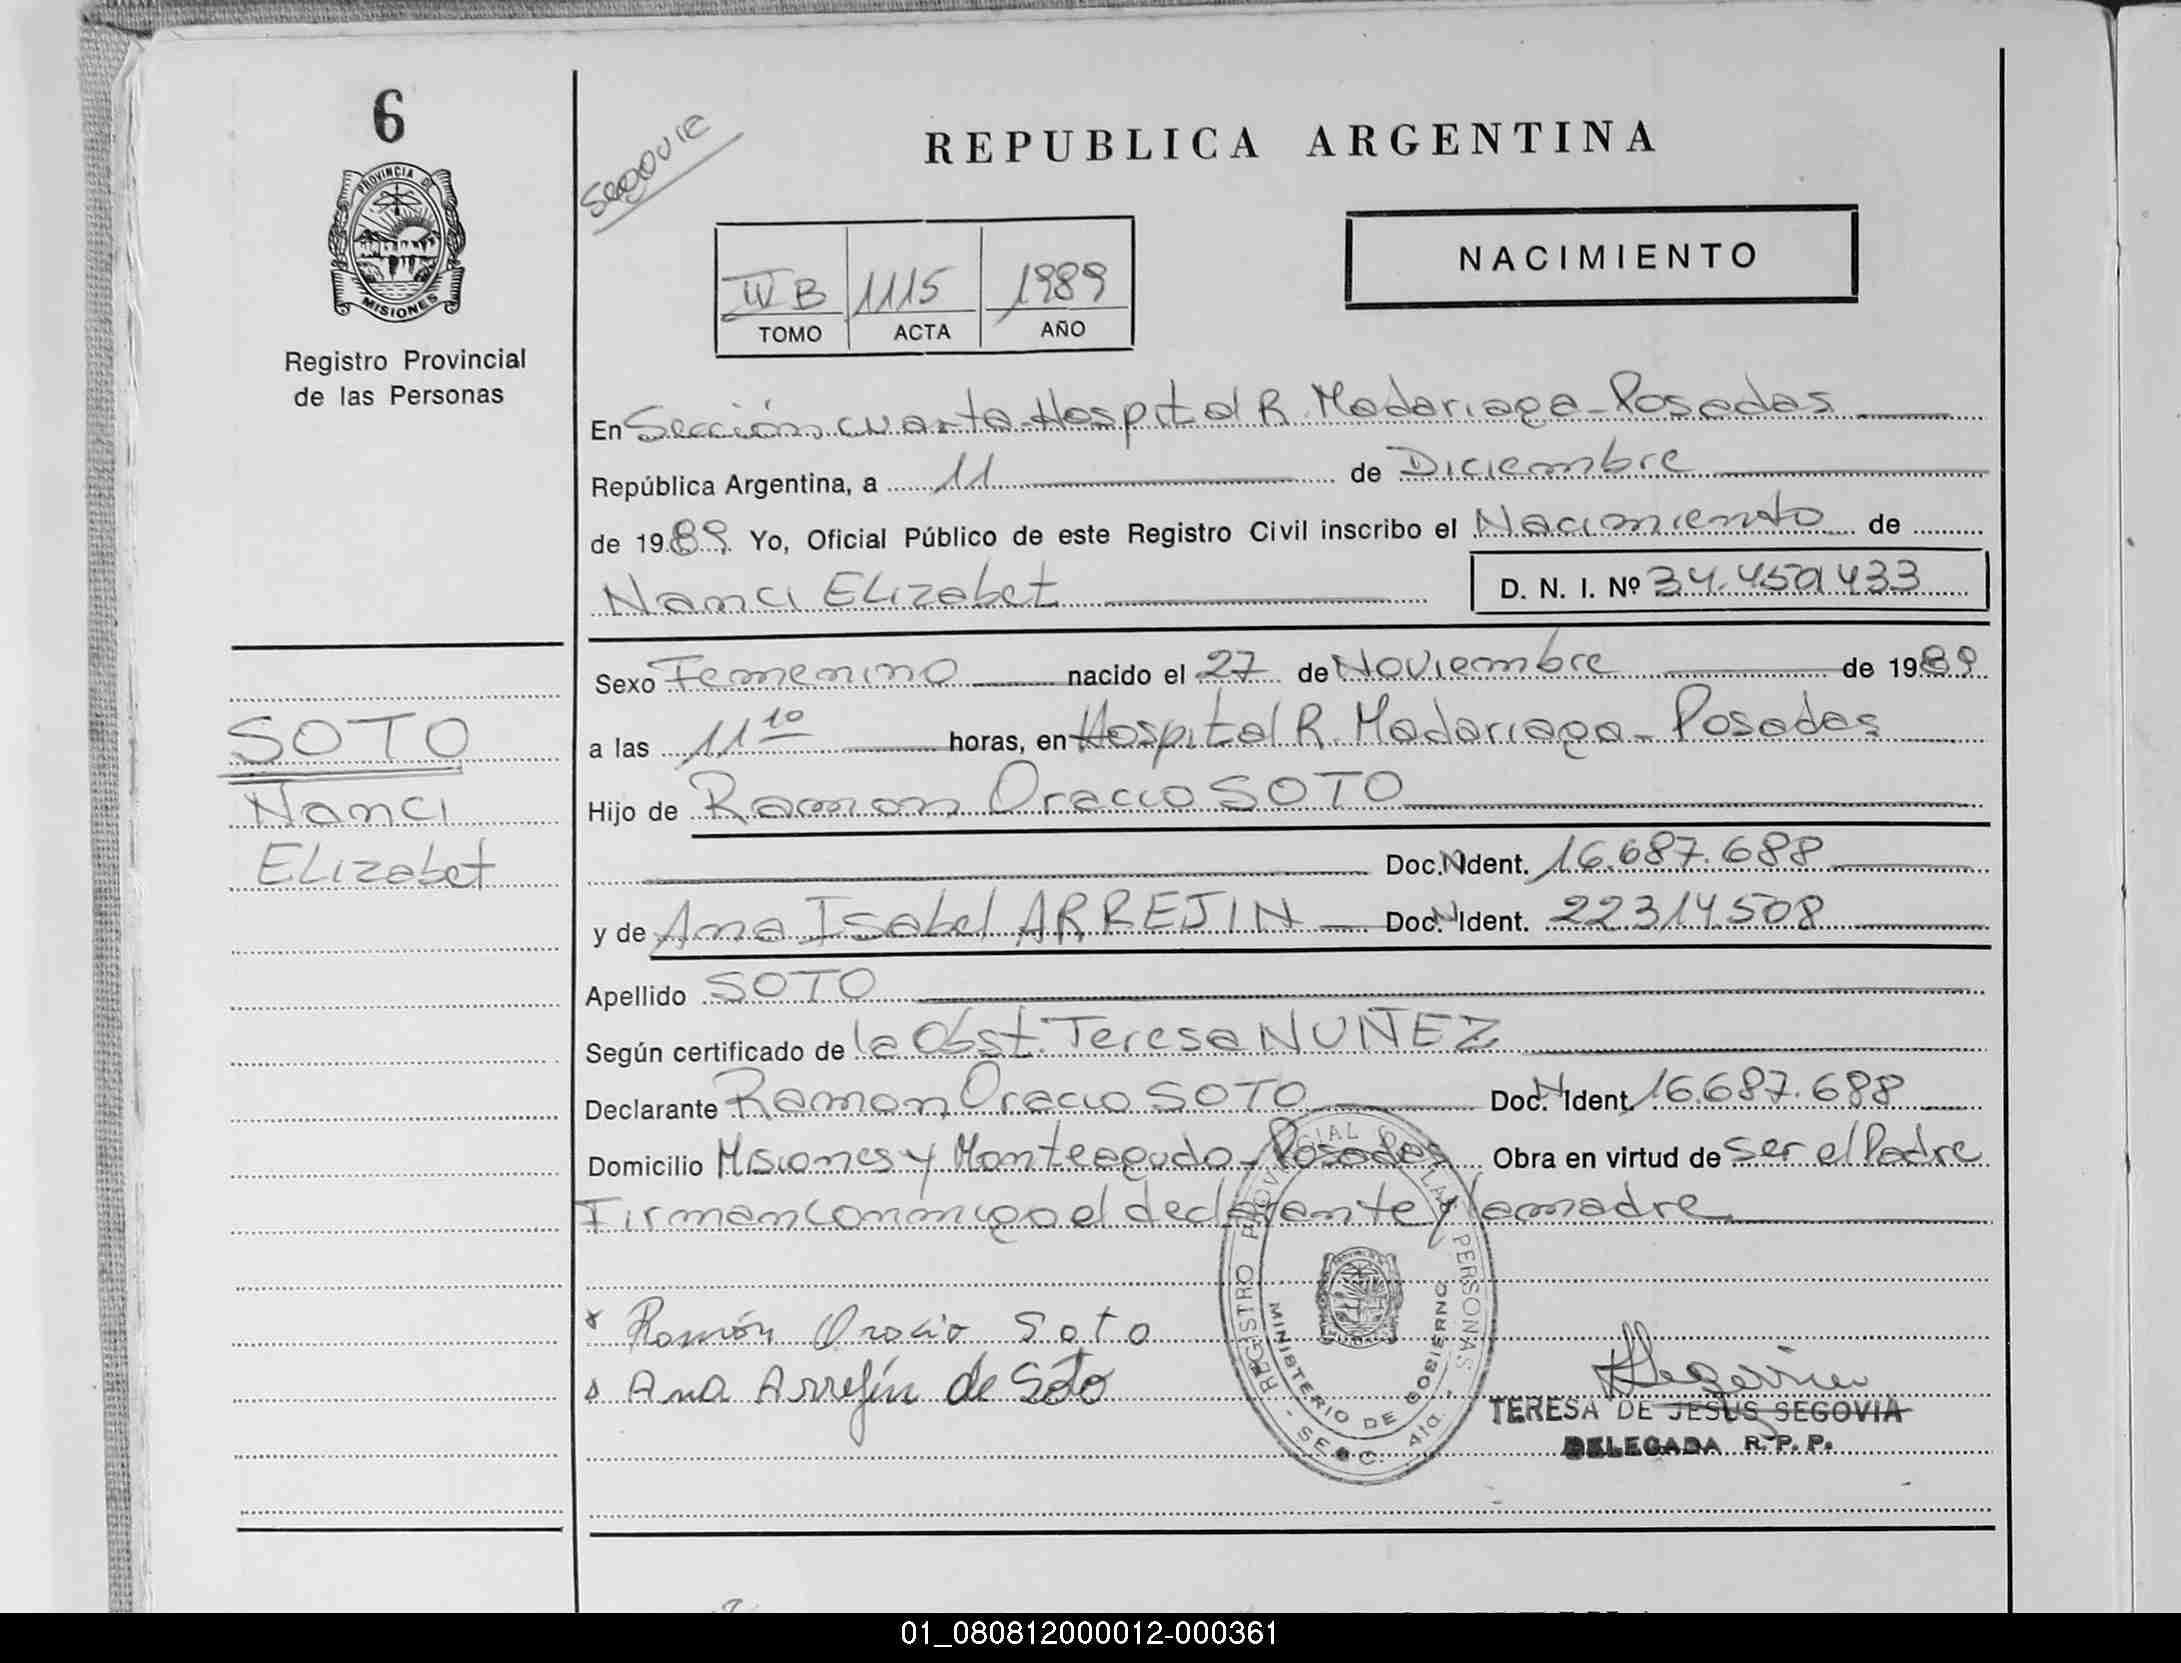 6
PROVINCIA DE
MISIONES
Registro Provincial
de las Personas
SOTO
Nanci
ELizabet
Segovie
REPUBLICA ARGENTINA
NACIMIENTO
IV B 1115 1989
TOMO ACTA AÑO
En Sección cuarta-Hospital R. Madariaga-Posadas
República Argentina, a 11 de Diciembre
de 1989. Yo, Oficial Público de este Registro Civil inscribo el Nacimiento de
Nanci ELizabet D. N. I. Nº 34.450.433
Sexo Femenino nacido el 27 de Noviembre de 1989
a las 11 10 horas, en Hospital R. Madariaga-Posadas
Hijo de Ramon Oracio SOTO
Doc.N Ident. 16.687.688
y de Ana Isabel ARREJIN Doc.N Ident. 22.314.508
Apellido SOTO
Según certificado de la Obst. Teresa NUÑEZ
Declarante Ramon Oracio SOTO Doc.N Ident. 16.687.688
Domicilio Misiones y Monteagudo-Posadas Obra en virtud de ser el Padre
Firman conmigo el declarante y la madre
x Ramón Oracio Soto
Ana Arrejin de Soto
REGISTRO PROVINCIAL DE LAS PERSONAS
MINISTERIO DE GOBIERNO
- SECC. 4ta. -
TERESA DE JESUS SEGOVIA
DELEGADA R. P. P.
01_080812000012-000361